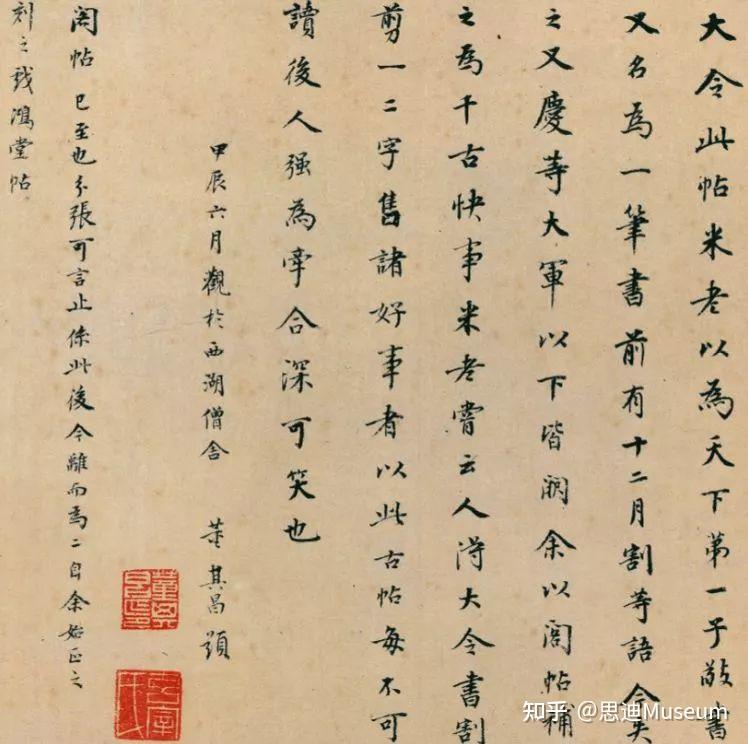 大令此帖米老以為天下第一子敬書
又名為一筆書前有十二月割等語今失
之又慶等大軍以下皆闕余以閣帖補
之為千古快事米老嘗云人得大令書割
剪一二字售諸好事者以此古帖每不可
讀後人强為牽合深可笑也
甲辰六月觀於西湖僧舍 董其昌題
閣帖已至也分張可言止係此後今離而為二自余始正之
刻之戲鴻堂帖
知乎 @思迪Museum